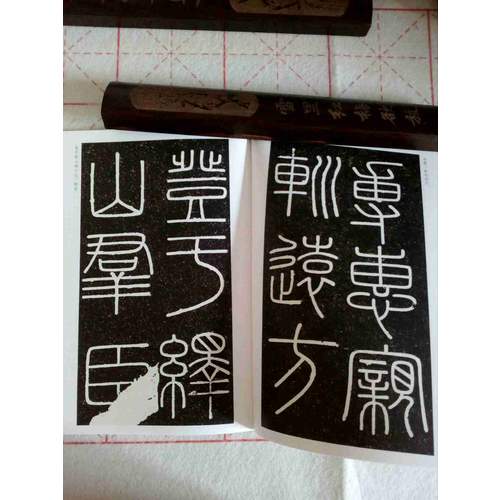 專惠寴
䡅遠方
登于繹
山羣臣